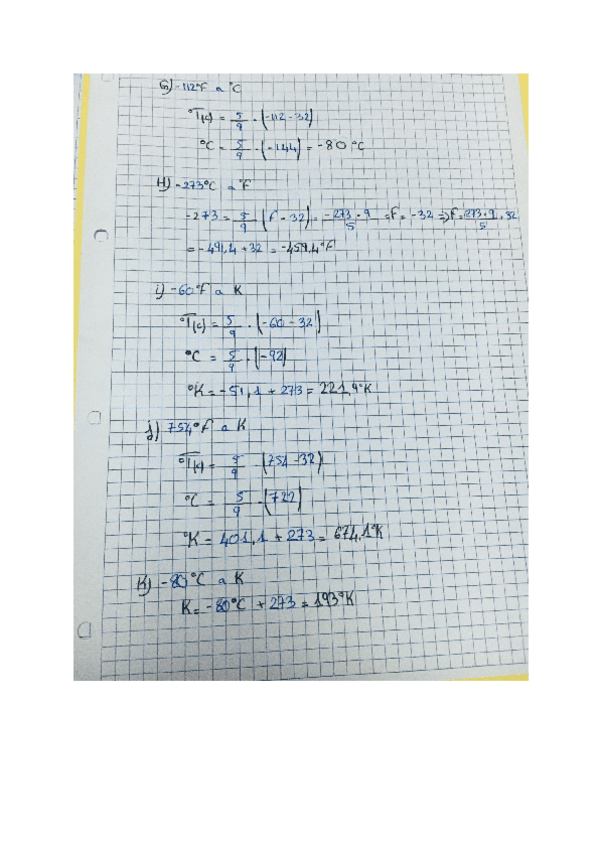 G) -112°F a °C
°T(c) = 5/9 · (-112 - 32)
°C = 5/9 · (-144) = -80 °C
H) -273°C a °F
-273 = 5/9 · (F - 32) = -273 · 9/5 = F = -32 => F = 273 · 9/5 + 32
= -491,4 + 32 = -459,4°F
i) -60°F a K
°T(c) = 5/9 · (-60 - 32)
°C = 5/9 · (-92)
°K = -51,1 + 273 = 221,9°K
j) 754°F a K
°T(c) = 5/9 · (754 - 32)
°C = 5/9 · (722)
°K = 401,1 + 273 = 674,1°K
K) -80°C a K
K = -80°C + 273 = 193°K